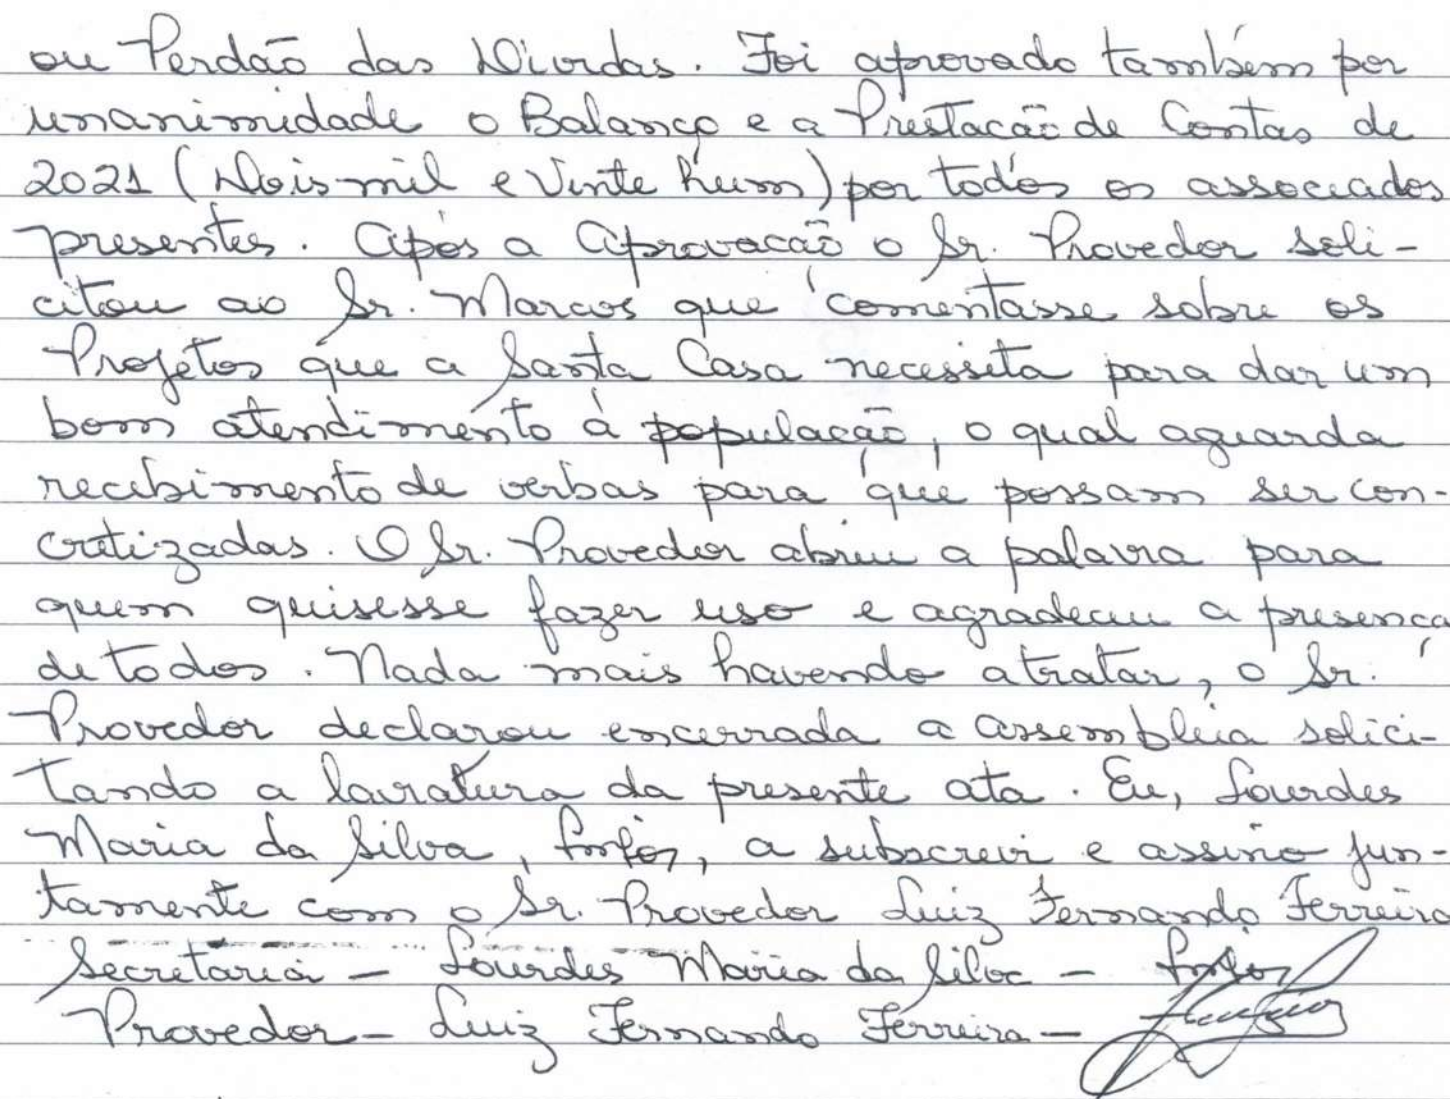 ou Perdão das Dívidas. Foi aprovado também por
unanimidade o Balanço e a Prestacão de Contas de
2021 (Dois mil e Vinte hum) por todos os associados
presentes. Após a Aprovacão o Sr. Provedor soli-
citou ao Sr. Marcos que comentasse sobre os
Projetos que a Santa Casa necessita para dar um
bom atendimento à população, o qual aguarda
recebimento de verbas para que possam ser con-
cretizadas. O Sr. Provedor abriu a palavra para
quem quisesse fazer uso e agradeceu a presença
de todos. Nada mais havendo a tratar, o Sr.
Provedor declarou encerrada a assembléia solici-
tando a lavratura da presente ata. Eu, Lourdes
Maria da Silva, a subscrevi e assino jun-
tamente com o Sr. Provedor Luiz Fernando Ferreira
Secretaria - Lourdes Maria da Silva -
Provedor - Luiz Fernando Ferreira -